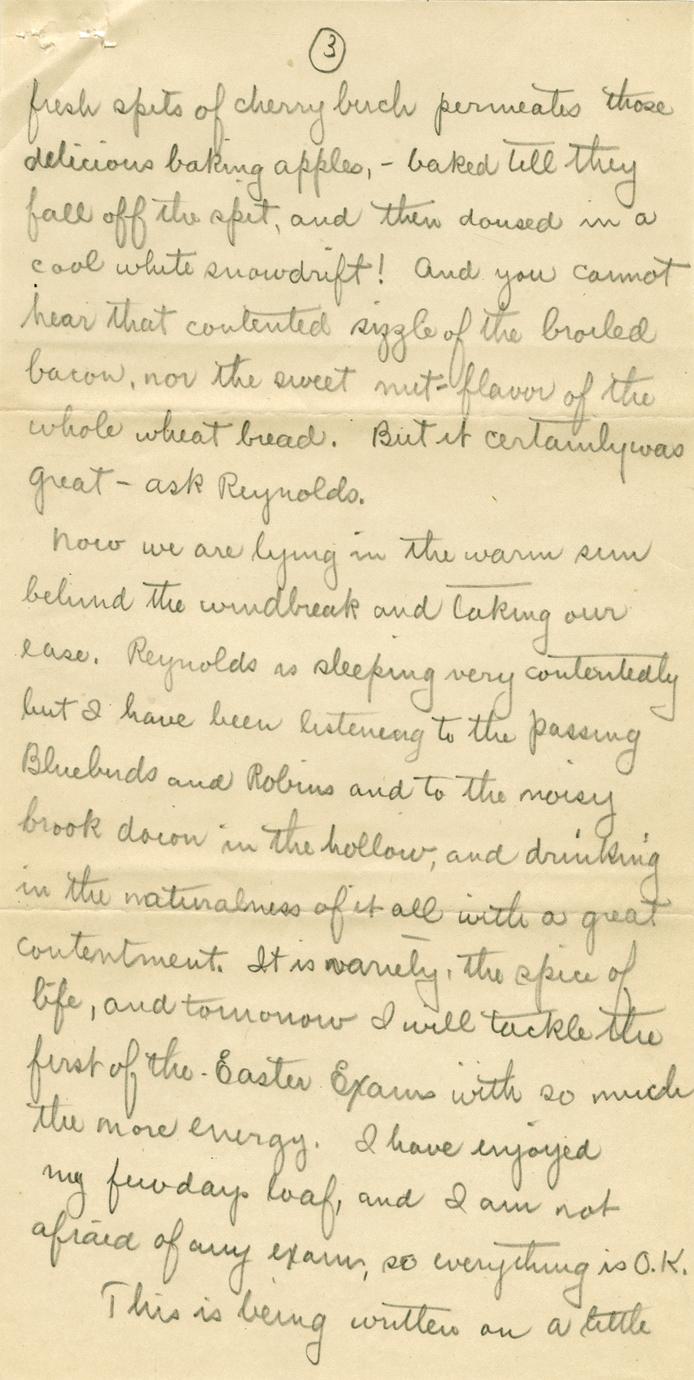 3
fresh spits of cherry birch permeates those
delicious baking apples, - baked till they
fall off the spit, and then doused in a
cool white snowdrift! And you cannot
hear that contented sizzle of the broiled
bacon, nor the sweet nut-flavor of the
whole wheat bread. But it certainly was
great - ask Reynolds.
Now we are lying in the warm sun
behind the windbreak and taking our
ease. Reynolds is sleeping very contentedly
but I have been listening to the passing
Bluebirds and Robins and to the noisy
brook down in the hollow, and drinking
in the naturalness of it all with a great
contentment. It is variety, the spice of
life, and tomorrow I will tackle the
first of the Easter Exams with so much
the more energy. I have enjoyed
my few days loaf, and I am not
afraid of any exam, so everything is O.K.
This is being written on a little